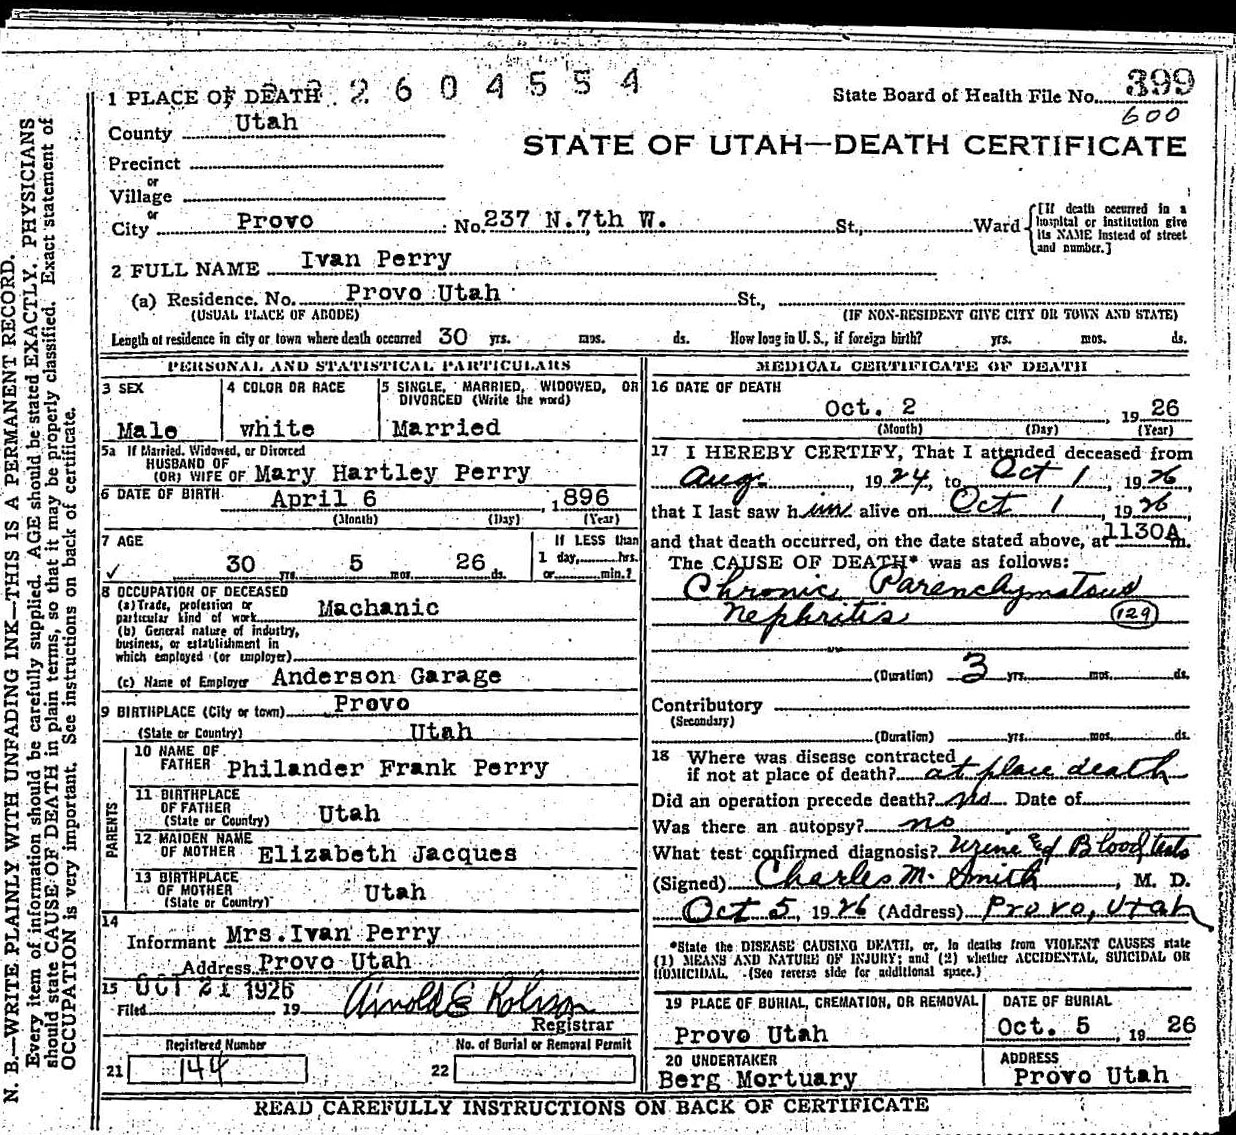 2 2 6 0 4 5 5 4
1 PLACE OF DEATH
State Board of Health File No. 399
600
County Utah
STATE OF UTAH—DEATH CERTIFICATE
Precinct
or
Village
or
City Provo No. 237 N.7th W. St., Ward
[If death occurred in a hospital or institution give its NAME instead of street and number.]
2 FULL NAME Ivan Perry
(a) Residence. No. Provo Utah St.,
(USUAL PLACE OF ABODE) (IF NON-RESIDENT GIVE CITY OR TOWN AND STATE)
Length of residence in city or town where death occurred 30 yrs. mos. ds. How long in U. S., if foreign birth? yrs. mos. ds.
PERSONAL AND STATISTICAL PARTICULARS
3 SEX
Male
4 COLOR OR RACE
white
5 SINGLE, MARRIED, WIDOWED, OR
DIVORCED (Write the word)
Married
5a If Married, Widowed, or Divorced
HUSBAND OF
(OR) WIFE OF Mary Hartley Perry
6 DATE OF BIRTH April 6 , 1896
(Month) (Day) (Year)
7 AGE
✓ 30 yrs. 5 mos. 26 ds.
If LESS than
1 day, hrs.
or min.?
8 OCCUPATION OF DECEASED
(a) Trade, profession or
particular kind of work Machanic
(b) General nature of industry,
business, or establishment in
which employed (or employer)
(c) Name of Employer Anderson Garage
9 BIRTHPLACE (City or town) Provo
(State or Country) Utah
PARENTS
10 NAME OF
FATHER Philander Frank Perry
11 BIRTHPLACE
OF FATHER
(State or Country) Utah
12 MAIDEN NAME
OF MOTHER Elizabeth Jacques
13 BIRTHPLACE
OF MOTHER
(State or Country) Utah
14
Informant Mrs.Ivan Perry
Address Provo Utah
15 OCT 21 1926
Filed 19
Registrar
Registered Number
21 144
No. of Burial or Removal Permit
22
MEDICAL CERTIFICATE OF DEATH
16 DATE OF DEATH
Oct. 2 , 19 26
(Month) (Day) (Year)
17 I HEREBY CERTIFY, That I attended deceased from
Aug. , 1924, to Oct 1 , 1926,
that I last saw him alive on Oct 1 , 1926,
and that death occurred, on the date stated above, at 1130A m.
The CAUSE OF DEATH* was as follows:
Chronic Parenchymatous
Nephritis 129
(Duration) 3 yrs. mos. ds.
Contributory
(Secondary)
(Duration) yrs. mos. ds.
18 Where was disease contracted
if not at place of death? at place death
Did an operation precede death? no Date of
Was there an autopsy? no
What test confirmed diagnosis? Urine & Blood tests
(Signed) Charles M. Smith , M. D.
Oct 5, 1926 (Address) Provo, Utah
*State the DISEASE CAUSING DEATH, or, in deaths from VIOLENT CAUSES state
(1) MEANS AND NATURE OF INJURY; and (2) whether ACCIDENTAL, SUICIDAL OR
HOMICIDAL. (See reverse side for additional space.)
19 PLACE OF BURIAL, CREMATION, OR REMOVAL
Provo Utah
DATE OF BURIAL
Oct. 5 , 19 26
20 UNDERTAKER
Berg Mortuary
ADDRESS
Provo Utah
READ CAREFULLY INSTRUCTIONS ON BACK OF CERTIFICATE
N. B.—WRITE PLAINLY WITH UNFADING INK—THIS IS A PERMANENT RECORD.
Every item of information should be carefully supplied. AGE should be stated EXACTLY. PHYSICIANS
should state CAUSE OF DEATH in plain terms, so that it may be properly classified. Exact statement of
OCCUPATION is very important. See instructions on back of certificate.